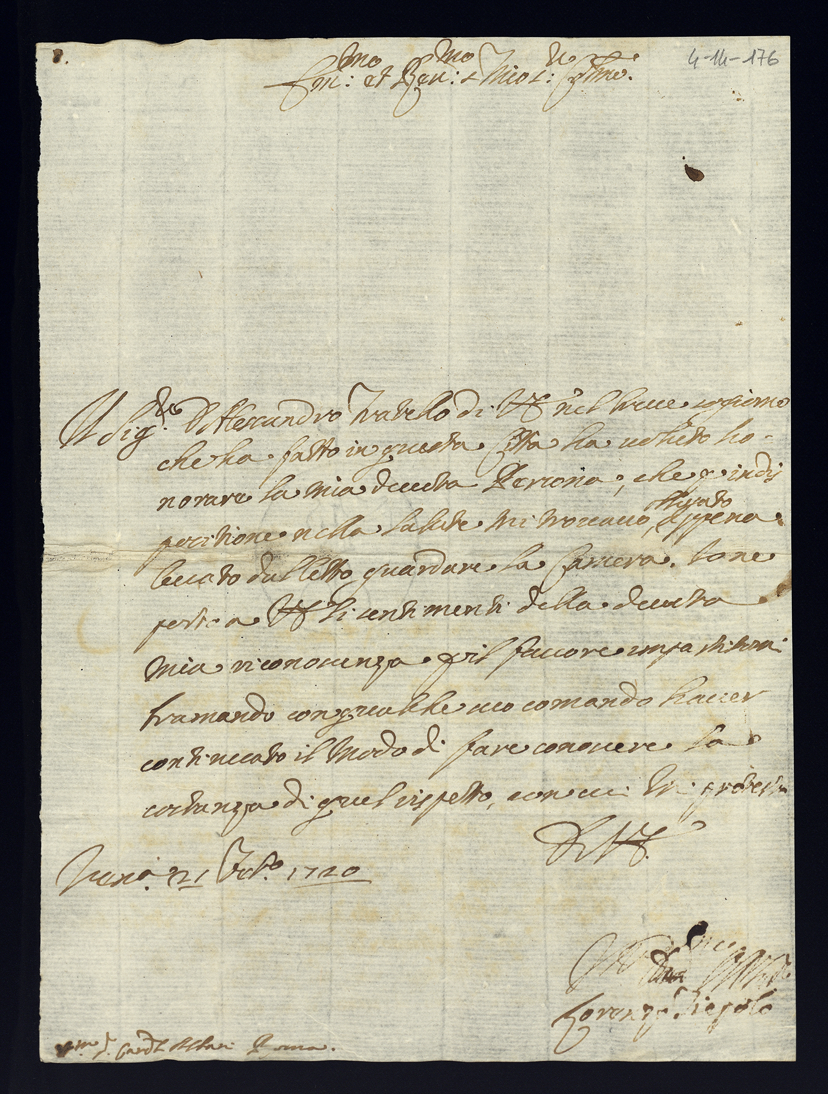 4-14-176
Em:mo et Rev:mo Sig.re Mio
Il Sig:re D Alexandro fratello di VE nel breve soggiorno
che ha fatto in questa Città ha voluto ho-
norare la mia devota Persona, che p indis
positione nella salute mi trovavo, appena
levato dal letto, guardare la Camera.
VE li sentimenti della devota
mia riconoscenza p il favore
bramando con qualche suo comando haver
continuato il modo di fare conoscere la
costanza di quel rispetto, con cui mi protesto
Di VE.
21 1720
Lorenzo Tiepolo
Card. Albani Roma.